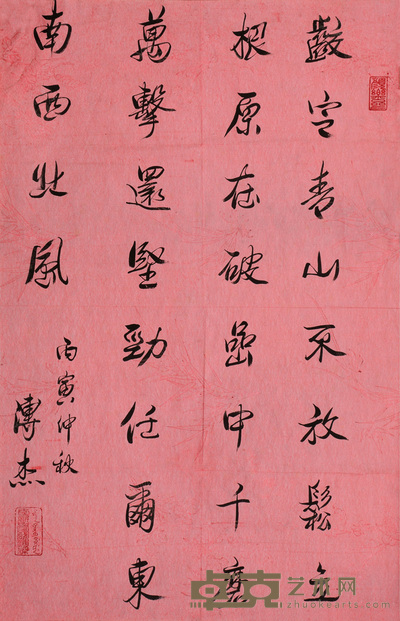 齩定青山不放鬆立
根原在破嵒中千磨
萬擊還堅勁任爾東
南西北風
丙寅仲秋
溥杰
卓克艺术网
zhuokearts.com